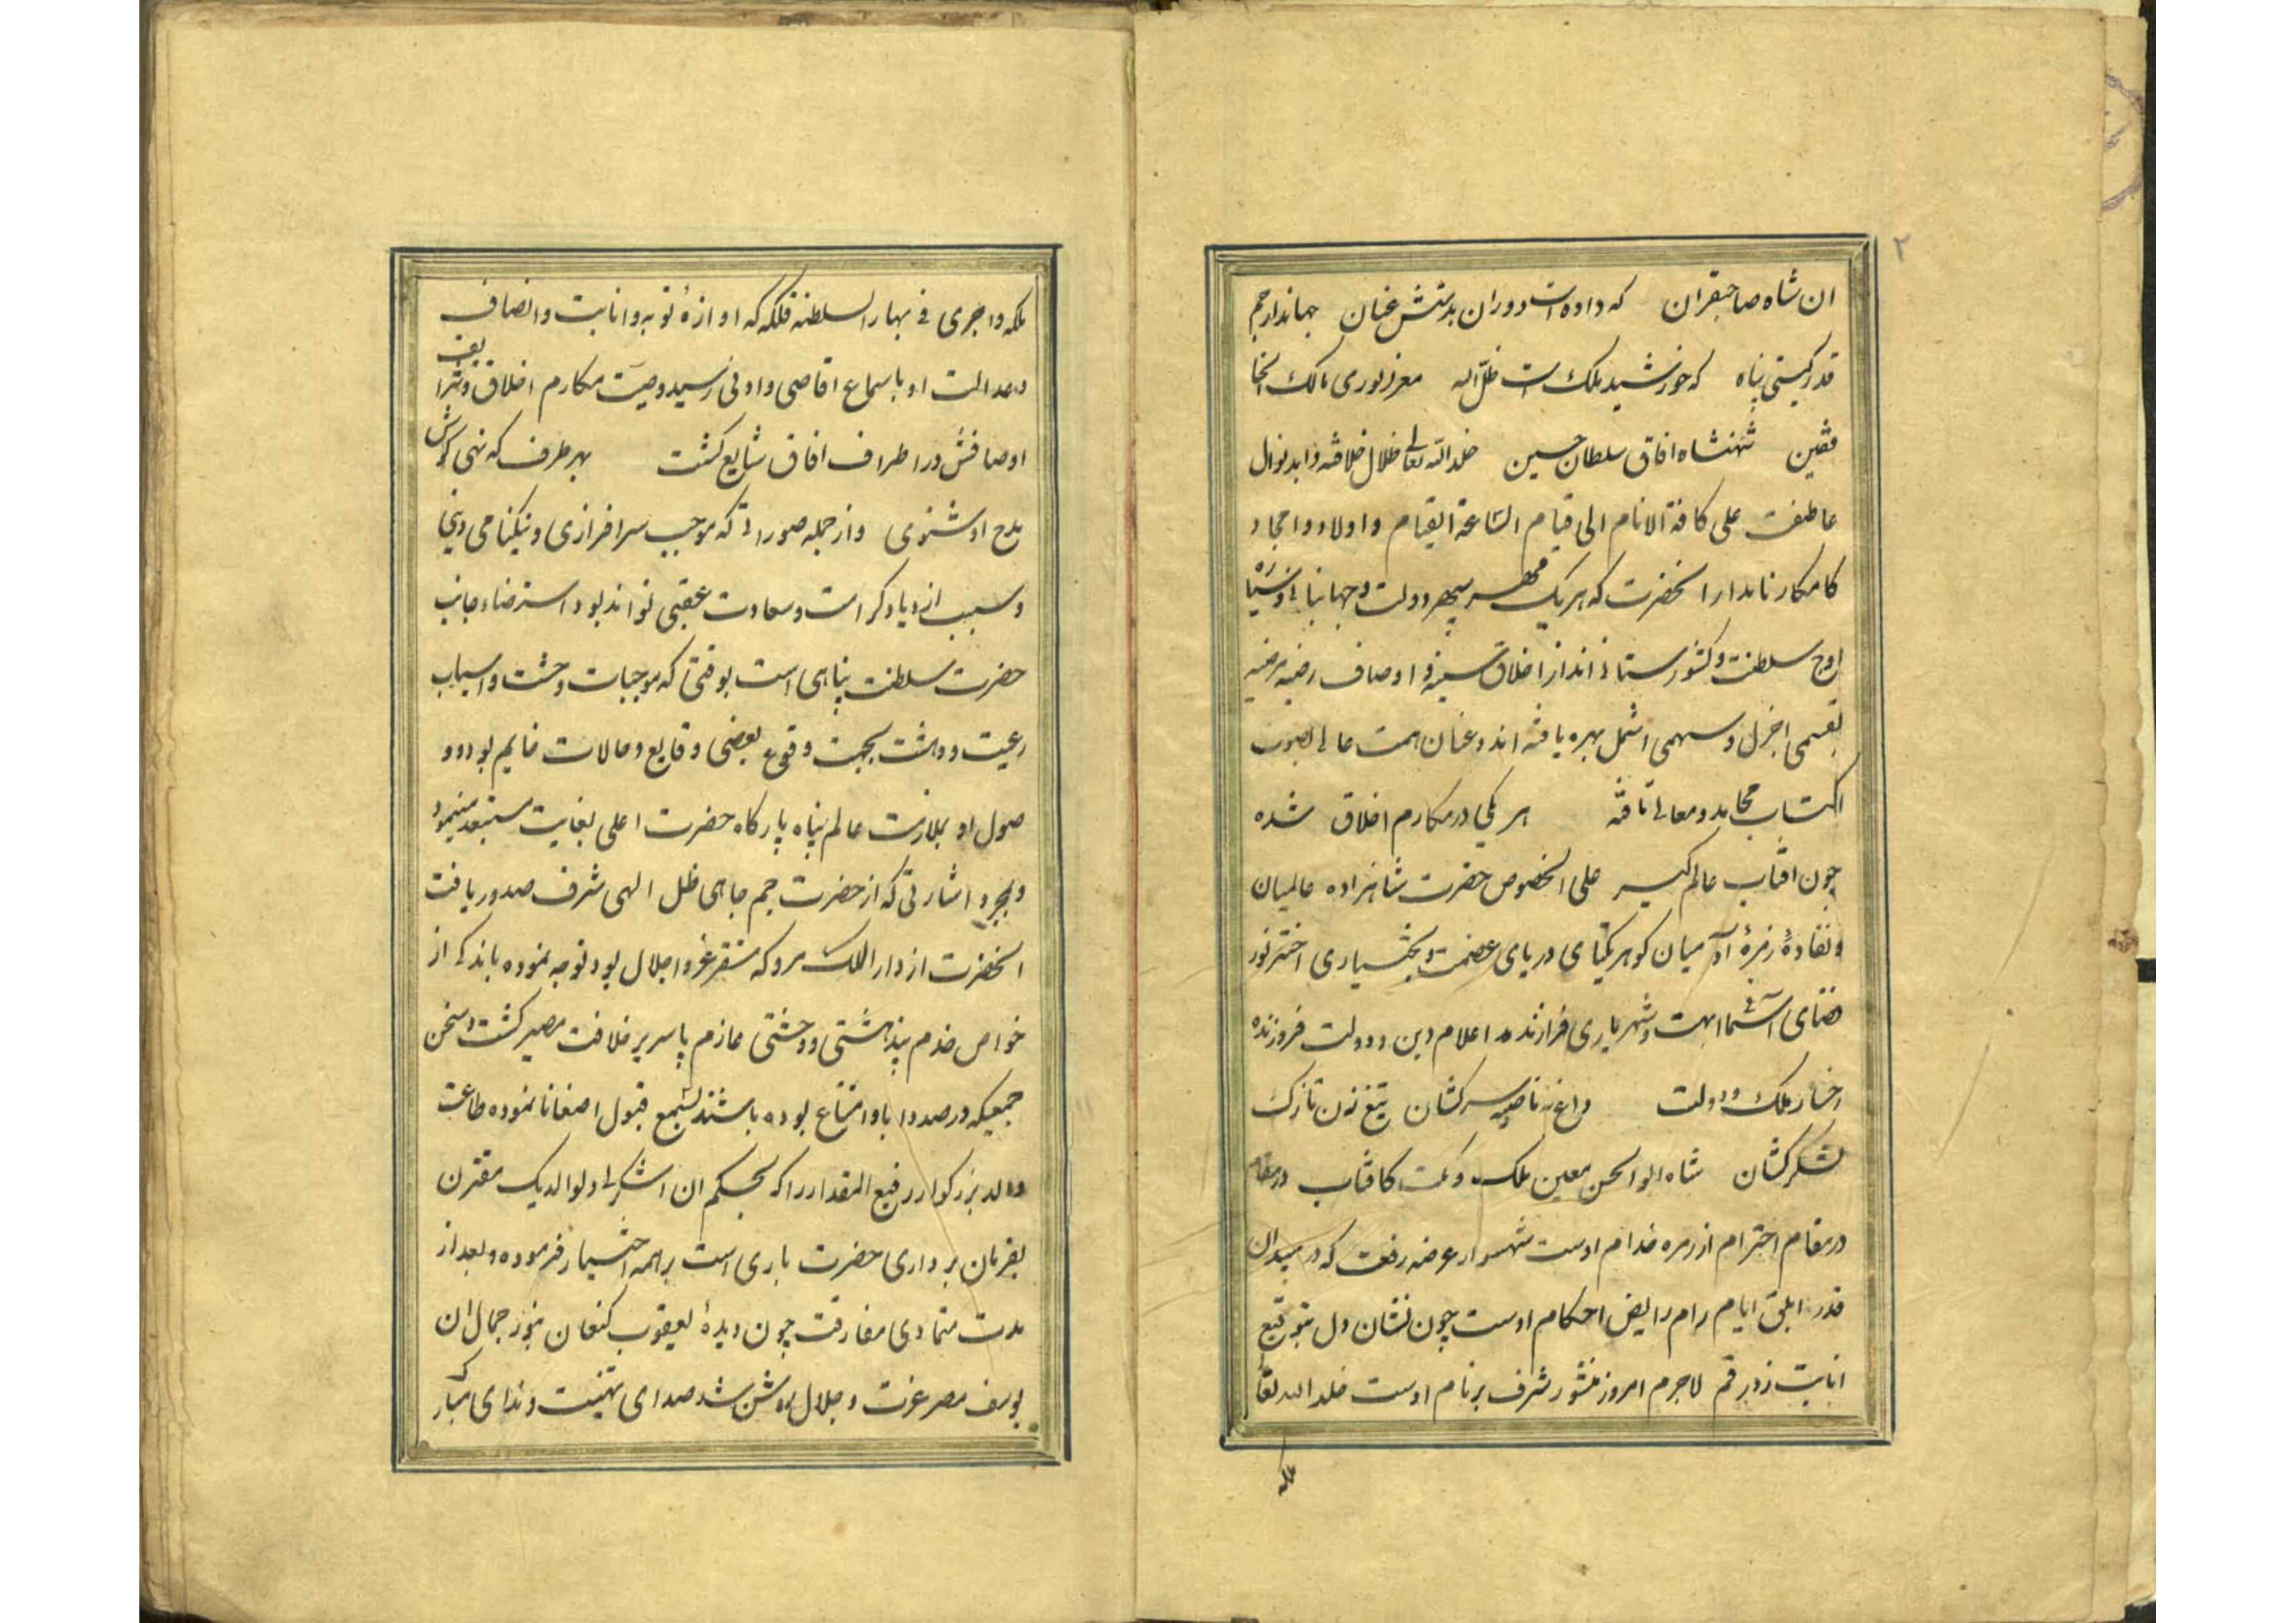 ۲
ان شاه صاحبقران که داده است دوران بدستش عنان جهاندار جم
قدر گیتی پناه که خورشید ملک است ظلّ اله معز لوری مالک الخا
فقین شهنشاه افاق سلطان حسین خلد الله تعالی ظلال خلافته و ابد نوال
عاطفت علی کافة الانام الی قیام الساعة القیام و اولاد و امجاد
کامکار نامدار انحضرت که هر یک مهر سپهر دولت و جهانبانی و سیاره
اوج سلطنت و کشورستانی اند از اخلاق سنیه و اوصاف رضیه مرضیه
بقسمی اجزل و سهمی اشمل بهره یافته اند و عنان همت عالی بصوب
اکتساب محامد و معالی تافته هر یکی در مکارم اخلاق شده
چون افتاب عالم کیر علی الخصوص حضرت شاهزاده عالمیان
و نقاوهٔ زمرهٔ آدمیان کوهر یکتای دریای عصمت و بختیاری اختر نور
فضای آسمان ابهت و شهریاری فرازنده اعلام دین و دولت فروزنده
رخسار ملک و دولت داغ نه ناصیه سرکشان تیغ زن تارک
لشکرکشان شاه ابوالحسن معین ملک و ملت کافتاب در مقام
در مقام احترام از زمره خدام اوست شهسوار عرصه رفعت که در میدان
قدر ابلق ایام رام رایض احکام اوست چون نشان دل بتوقیع
انابت زد رقم لاجرم امروز منشور شرف بر نام اوست خلد الله تعالی
ملکه
ملکه و اجری فی بهار السلطنه فلکه که اوازهٔ توبه و انابت و انصاف
و عدالت او باسماع اقاصی و ادنی رسید وصیت مکارم اخلاق و شرایف
اوصافش در اطراف افاق شایع کشت بهر طرف که نهی کوش
مدح او شنوی و از جمله صوراتی که موجب سرافرازی و نیکنامی دینی
و سبب ازدیاد کرامت و سعادت عقبی تواند بود استرضاء جانب
حضرت سلطنت پناهی است بوقتی که موجبات وحشت و اسباب
رعیت و دهشت بجهت وقوع بعضی وقایع و حالات قایم بود و و
صول او بملازمت عالم پناه پارکاه حضرت اعلی بغایت مستبعد مینمود
و بمجرد اشارتی که از حضرت جم جاهی ظل الهی شرف صدور یافت
انحضرت از دار الملک مرو که مستقر عز و اجلال بود توجه نموده باندکی از
خواص خدم بیدهشتی و وحشتی عازم پاسریر خلافت مصیر کشت و سخن
جمعیکه در صدد ابا و امتناع بوده باشند بسمع قبول اصغا نا نموده طاعت
والد بزرکوار رفیع المقدار را که بحکم ان اشکر لی و لوالدیک مقترن
بفرمان برداری حضرت باری است بر همه اختیار فرموده و بعد از
مدت متمادی مفارقت چون دیدهٔ یعقوب کنعان بنور جمال ان
یوسف مصر عزت و جلال روشن شد صدای تهنیت و ندای مبارک